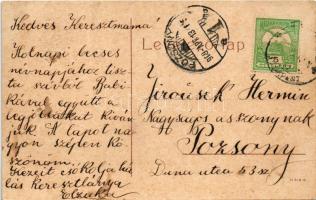 Kedves Keresztmama!
Holnapi becses
névnapjához tisz
ta szívből Babi
kával együtt a
legjobbakat kíván
juk. A lapot na
gyon szépen kö
szönöm.
Kezeit csókolja há
lás keresztlánya
Erzsike
Levelezőlap
Jirousek Hermin
Nagyságos asszonynak
Pozsony
Duna utca 53 sz